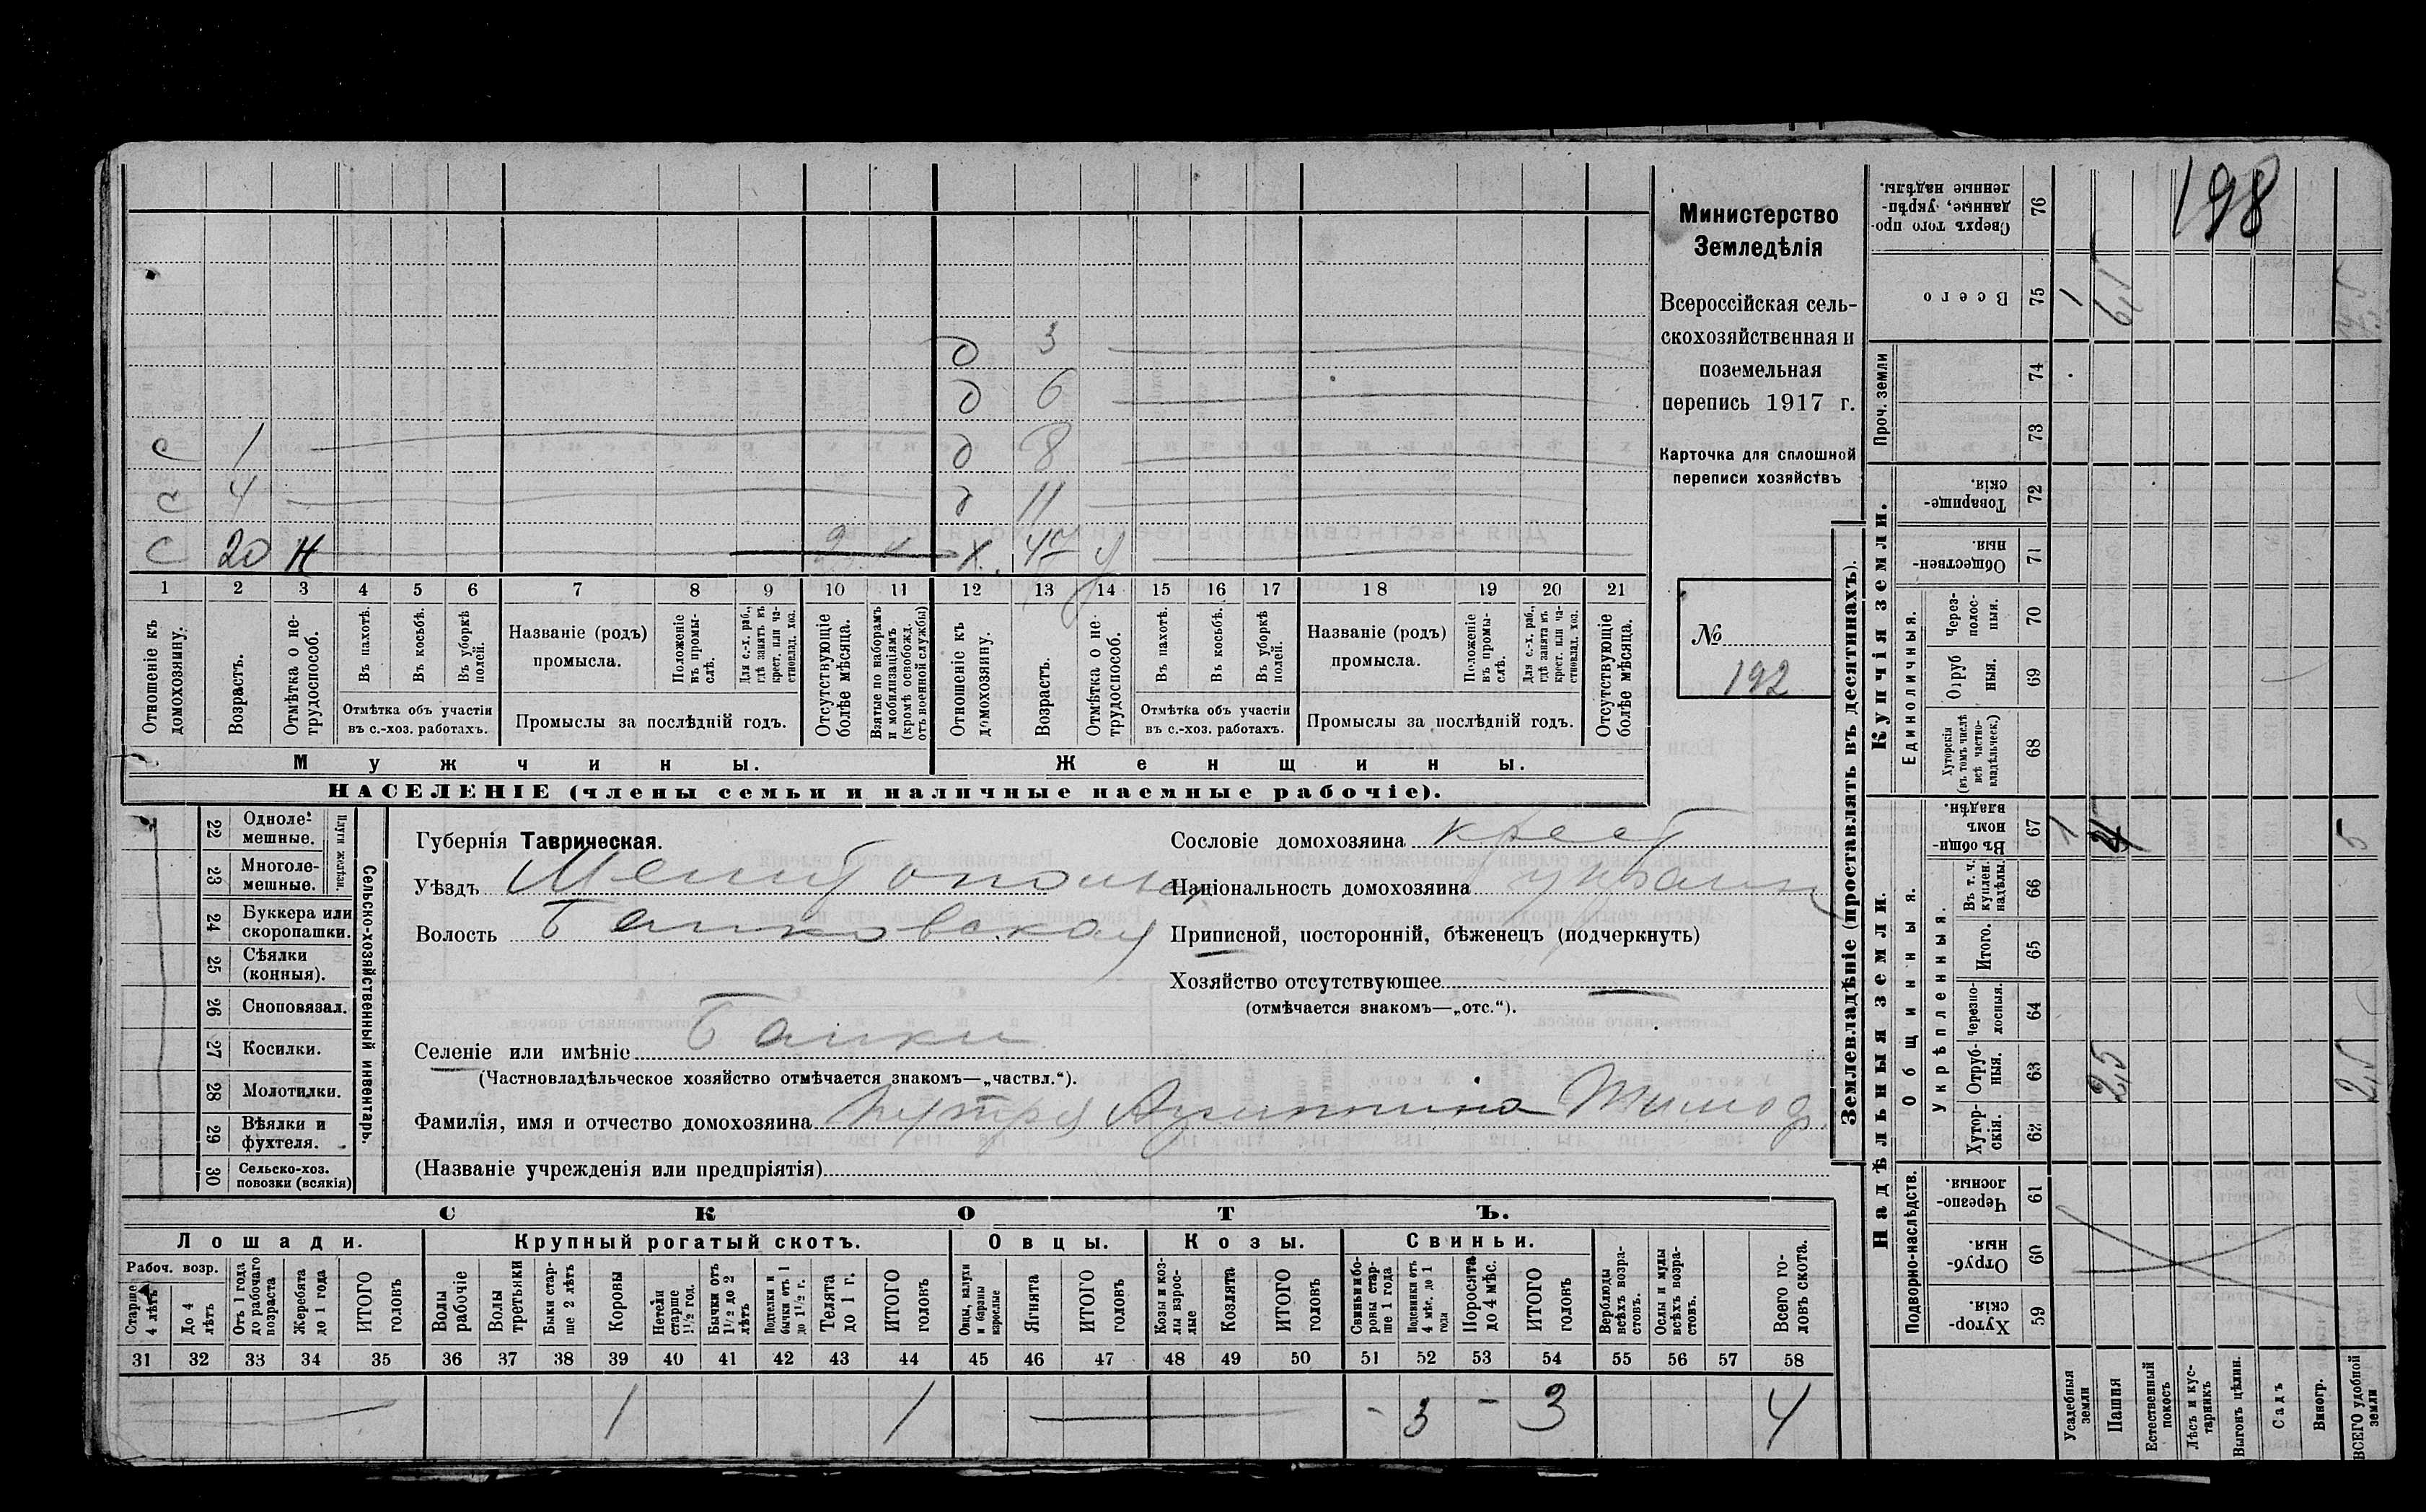 198
Министерство
Земледѣлія
Всероссійская сель-
скохозяйственная и
поземельная
перепись 1917 г.
Карточка для сплошной
переписи хозяйствъ
№
192
д 3
д 6
с 1 д 8
с 4 д 11
с 20 Н
1 2 3 4 5 6 7 8 9 10 11 12 13 14 15 16 17 18 19 20 21
Отношеніе къ домохозяину.
Возрастъ.
Отмѣтка о не-трудоспособ.
Въ пахотѣ.
Въ косьбѣ.
Въ уборкѣ полей.
Отмѣтка объ участіи
въ с.-хоз. работахъ.
Названіе (родъ)
промысла.
Положеніе въ промы-слѣ.
Для с.-х. раб., гдѣ занятъ въ крест. или ча-стновлад. хоз.
Промыслы за послѣдній годъ.
Отсутствующіе болѣе мѣсяца.
Взятые по наборамъ и мобилизаціямъ (кромѣ освобожд. отъ военной службы)
Отношеніе къ домохозяину.
Возрастъ.
Отмѣтка о не-трудоспособ.
Въ пахотѣ.
Въ косьбѣ.
Въ уборкѣ полей.
Отмѣтка объ участіи
въ с.-хоз. работахъ.
Названіе (родъ)
промысла.
Положеніе въ промы-слѣ.
Для с.-х. раб., гдѣ занята въ крест. или ча-стновлад. хоз.
Промыслы за послѣдній годъ.
Отсутствующіе болѣе мѣсяца.
Мужчины.
Женщины.
НАСЕЛЕНІЕ (члены семьи и наличные наемные рабочіе).
22 Одноле-мешные.
23 Многоле-мешные.
Плуги желѣзн.
24 Буккера или скоропашки.
25 Сѣялки (конныя).
26 Сноповязал.
27 Косилки.
28 Молотилки.
29 Вѣялки и фухтеля.
30 Сельско-хоз. повозки (всякія)
Сельско-хозяйственный инвентарь.
Губернія Таврическая.
Уѣздъ
Волость
Селеніе или имѣніе Балки
(Частновладѣльческое хозяйство отмѣчается знакомъ—„частвл.“).
Фамилія, имя и отчество домохозяина
(Названіе учрежденія или предпріятія)
Сословіе домохозяина крест
Національность домохозяина
Приписной, посторонній, бѣженецъ (подчеркнуть)
Хозяйство отсутствующее —
(отмѣчается знакомъ—„отс.“).
СКОТЪ.
Лошади.
Крупный рогатый скотъ.
Овцы.
Козы.
Свиньи.
Рабоч. возр.
Старше 4 лѣтъ
До 4 лѣтъ
Отъ 1 года до рабочаго возраста
Жеребята до 1 года
ИТОГО головъ
Волы рабочіе
Волы третьяки
Быки стар-ше 2 лѣтъ
Коровы
Нетели старше 1½ год.
Бычки отъ 1½ до 2 лѣтъ
Подтелки и бычки отъ 1 до 1½ г.
Телята до 1 г.
ИТОГО головъ
Овцы, валухи и бараны взрослые
Ягнята
ИТОГО головъ
Козы и коз-лы взрос-лые
Козлята
ИТОГО головъ
Свиньи и бо-ровы стар-ше 1 года
Подсвинки отъ 4 мѣс. до 1 года
Поросята до 4 мѣс.
ИТОГО головъ
Верблюды всѣхъ возра-стовъ.
Ослы и мулы всѣхъ возра-стовъ.
Всего го-ловъ скота.
31 32 33 34 35 36 37 38 39 40 41 42 43 44 45 46 47 48 49 50 51 52 53 54 55 56 57 58
1 1 - 3 - 3 4
Землевладѣніе (проставлять въ десятинахъ).
Купчія земли.
Надѣльныя земли.
Сверхъ того про-данные, укрѣп-ленные надѣлы. 76
Всего 75 1
Проч. земли 74
73
Товарище-скія. 72
Обществен-ныя. 71
Единоличныя.
Через-полос-ныя. 70
Отруб-ныя. 69
Хуторскія (въ томъ числѣ всѣ частно-владѣльческ.) 68
Общинныя.
Въ общи-номъ владѣн. 67 1 5
Укрѣпленныя.
Въ т. ч. куплен. надѣлы. 66
Итого. 65
Черезпо-лосныя. 64
Отруб-ныя. 63 2,5 2,5
Хутор-скія. 62
Подворно-наслѣдств.
Черезпо-лосныя. 61
Отруб-ныя. 60
Хутор-скія. 59
Усадебныя земли
Пашня
Естественный покосъ
Лѣсъ и кус-тарникъ
Выгонъ цѣлин.
Садъ
Виногр.
ВСЕГО удобной земли